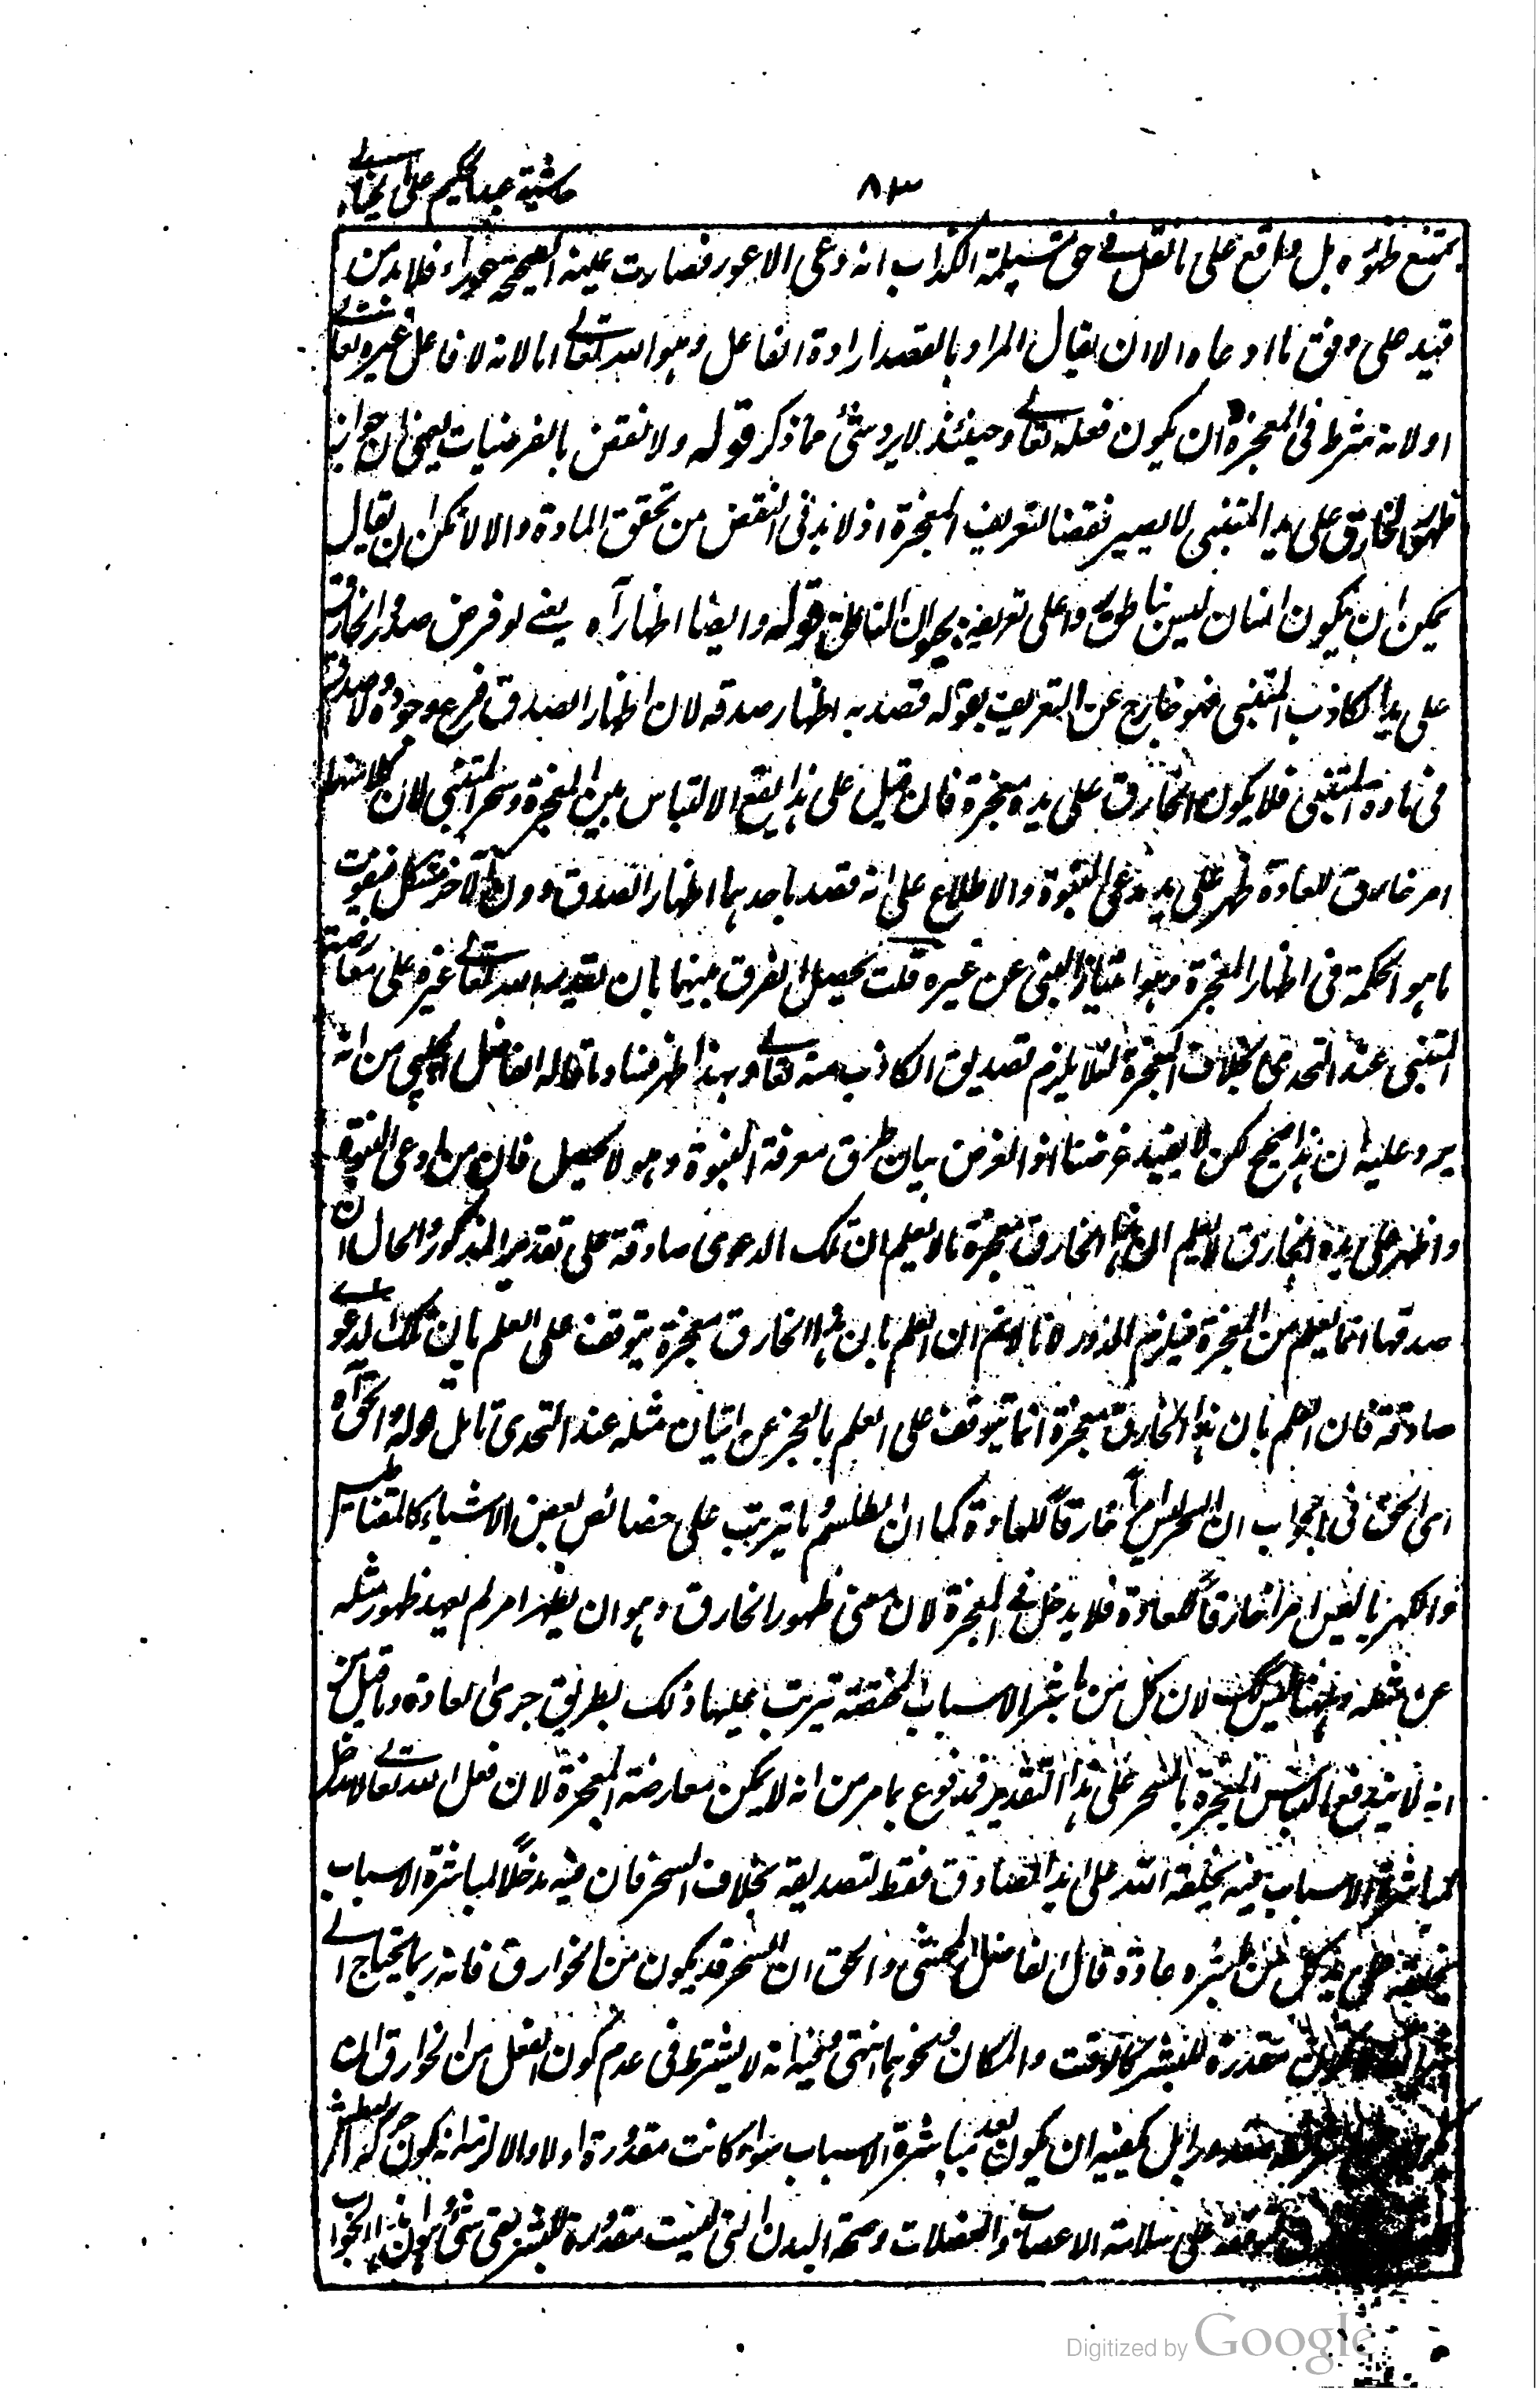 حاشية عبدالحكيم على الخيالى
٨٣
يمتنع ظهوره بل واقع على ما نقل فى حق مسيلمة الكذاب انه دعى الاعور فصارت عينه الصحيحة عوراء فلا بد من
قيد على وفق ما ادعاه الا ان يقال المراد بالقصد ارادة الفاعل وهو الله تعالى اما لانه لا فاعل غيره تعالى
اولانه شرط فى المعجزة ان يكون فعله تعالى وحينئذ لا يرد شئ مما ذكر قوله ولا نقض بالفرضيات يعنى ان جواز
ظهور الخارق على يد المتنبى لا يصير نقضا لتعريف المعجزة اذ لا بد فى النقض من تحقق المادة والا لامكن ان يقال
يمكن ان يكون انسان ليس بناطق واعلى تعريفه بحيوان الناطق قوله وايضا اظهار آه يعنى لو فرض صدور الخارق
على يد الكاذب المتنبى فهو خارج عن التعريف بقوله قصد به اظهار صدقه لان اظهار الصدق فرع وجوده ولا صدق
فى مادة المتنبى فلا يكون الخارق على يده معجزة فان قيل على هذا يقع الالتباس بين المعجزة وسحر المتنبى لان كلا منهما
امر خارق للعادة ظهر على يد مدعى النبوة والاطلاع على انه قصد باحدهما اظهار الصدق دون الآخر مشكل فيفوت
ما هو الحكمة فى اظهار المعجزة وهو امتياز النبى عن غيره قلت يحصل الفرق بينهما بان يقدر الله تعالى غيره على معارضة
المتنبى عند التحدى بخلاف المعجزة لئلا يلزم تصديق الكاذب منه تعالى وبهذا ظهر فساد ما قاله الفاضل الچلپى من انه
يرد عليه ان هذا صحيح لكن لا يفيد غرضنا اذ الغرض بيان طرق معرفة النبوة وهو لا يحصل فان من ادعى النبوة
واظهر على يده الخارق لا يعلم ان هذا الخارق معجزة ما لا يعلم ان تلك الدعوى صادقة على تقدير المذكور والحال ان
صدقها انما يعلم من المعجزة فيلزم الدور لانا لا نم ان العلم بان هذا الخارق معجزة يتوقف على العلم بان تلك الدعوى
صادقة فان العلم بان هذا الخارق معجزة انما يتوقف على العلم بالعجز عن اتيان مثله عند التحدى تامل قوله والحق آه
اى الحق فى الجواب ان السحر ليس امرا خارقا للعادة كما ان الطلسم ما يترتب على خصائص بعض الاشياء كالمقناطيس
والكهربا ليس امرا خارقا للعادة فلا يدخل فى المعجزة لان معنى ظهور الخارق وهو ان يظهر امر لم يعهد ظهور مثله
عن مثله وههنا ليس كك لان كل من باشر الاسباب المختصة ترتب عليها ذلك بطريق جرى العادة وما قيل من
انه لا يندفع التباس المعجزة بالسحر على هذا التقدير فمدفوع بما مر من انه لا يمكن معارضة المعجزة لان فعل الله تعالى لا دخل
لمباشرة الاسباب فيه يخلقه الله على يد الصادق فقط لتصديقه بخلاف السحر فان فيه مدخلا لمباشرة الاسباب
يخلقه على يد كل من باشره عادة قال الفاضل المحشى والحق ان السحر قد يكون من الخوارق فانه ربما يحتاج الى
مقدرة للبشر كالوقت والمكان ونحوهما انتهى وفيه انه لا يشترط فى عدم كون الفعل من الخوارق ان
بل يكفيه ان يكون بعد مباشرة الاسباب سواء كانت مقدورة اولا والا لزم ان يكون حركة البطش
على سلامة الاعصاب والعضلات وصحة البدن التى ليست مقدورة للبشر بقى شئ وهو ان هذا الجواب
Digitized by Google